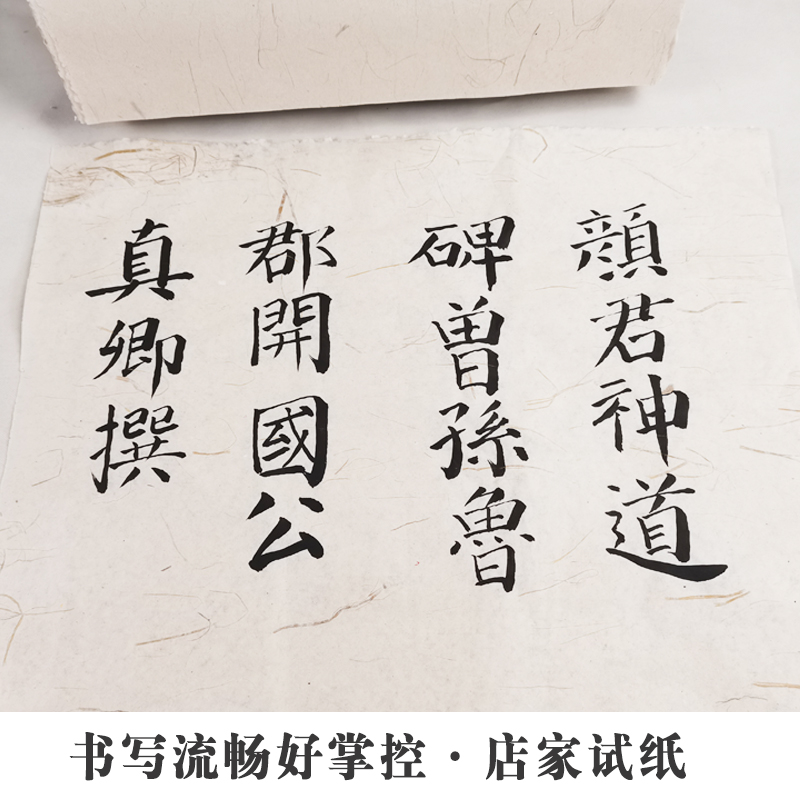 顔君神道
碑曽孫魯
郡開國公
真卿撰
书写流畅好掌控·店家试纸